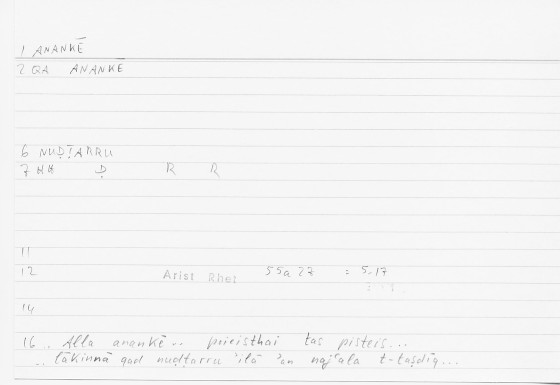 1 ANANKĒ
2 QA ANANKĒ
6 NUḌṬARRU
7 ḌRR
11
12 Arist Rhet 55a 27 = 5,17
14
16 .. Alla anankē .. poieisthai tas pisteis...
.. lākinnā qad nuḍṭarru 'ilā 'an naǧ'ala t-taṣdīq...